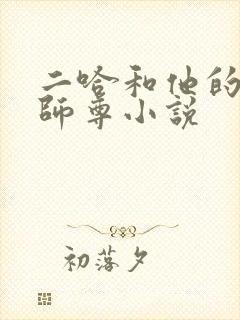 二哈和他的
師尊小説
初落夕